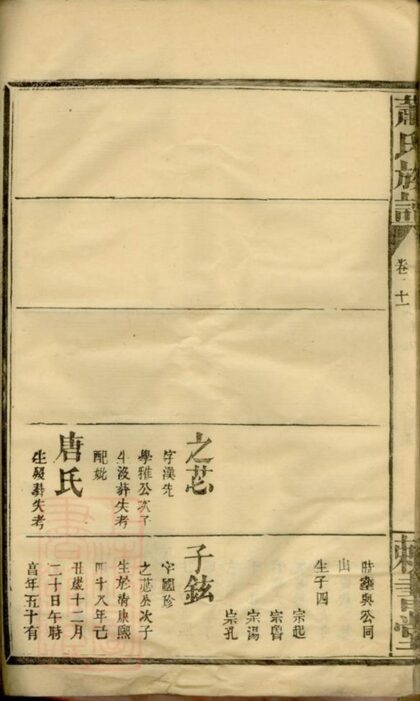 蕭氏族譜
卷二十一
之芯
字漢先
學雅公次子
生沒葬失考
配妣
唐氏
生歿葬失考
時葬與公同
山
生子四
宗起
宗魯
宗湯
宗孔
子鉉
字國珍
之芯公次子
生於清康熙
四十八年己
丑歲十二月
二十日午時
享年五十有